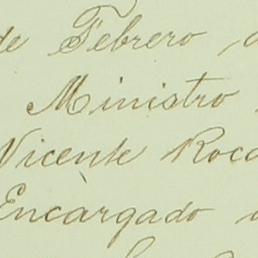 de Febrero
Ministro
Vicente Roca
Encargado